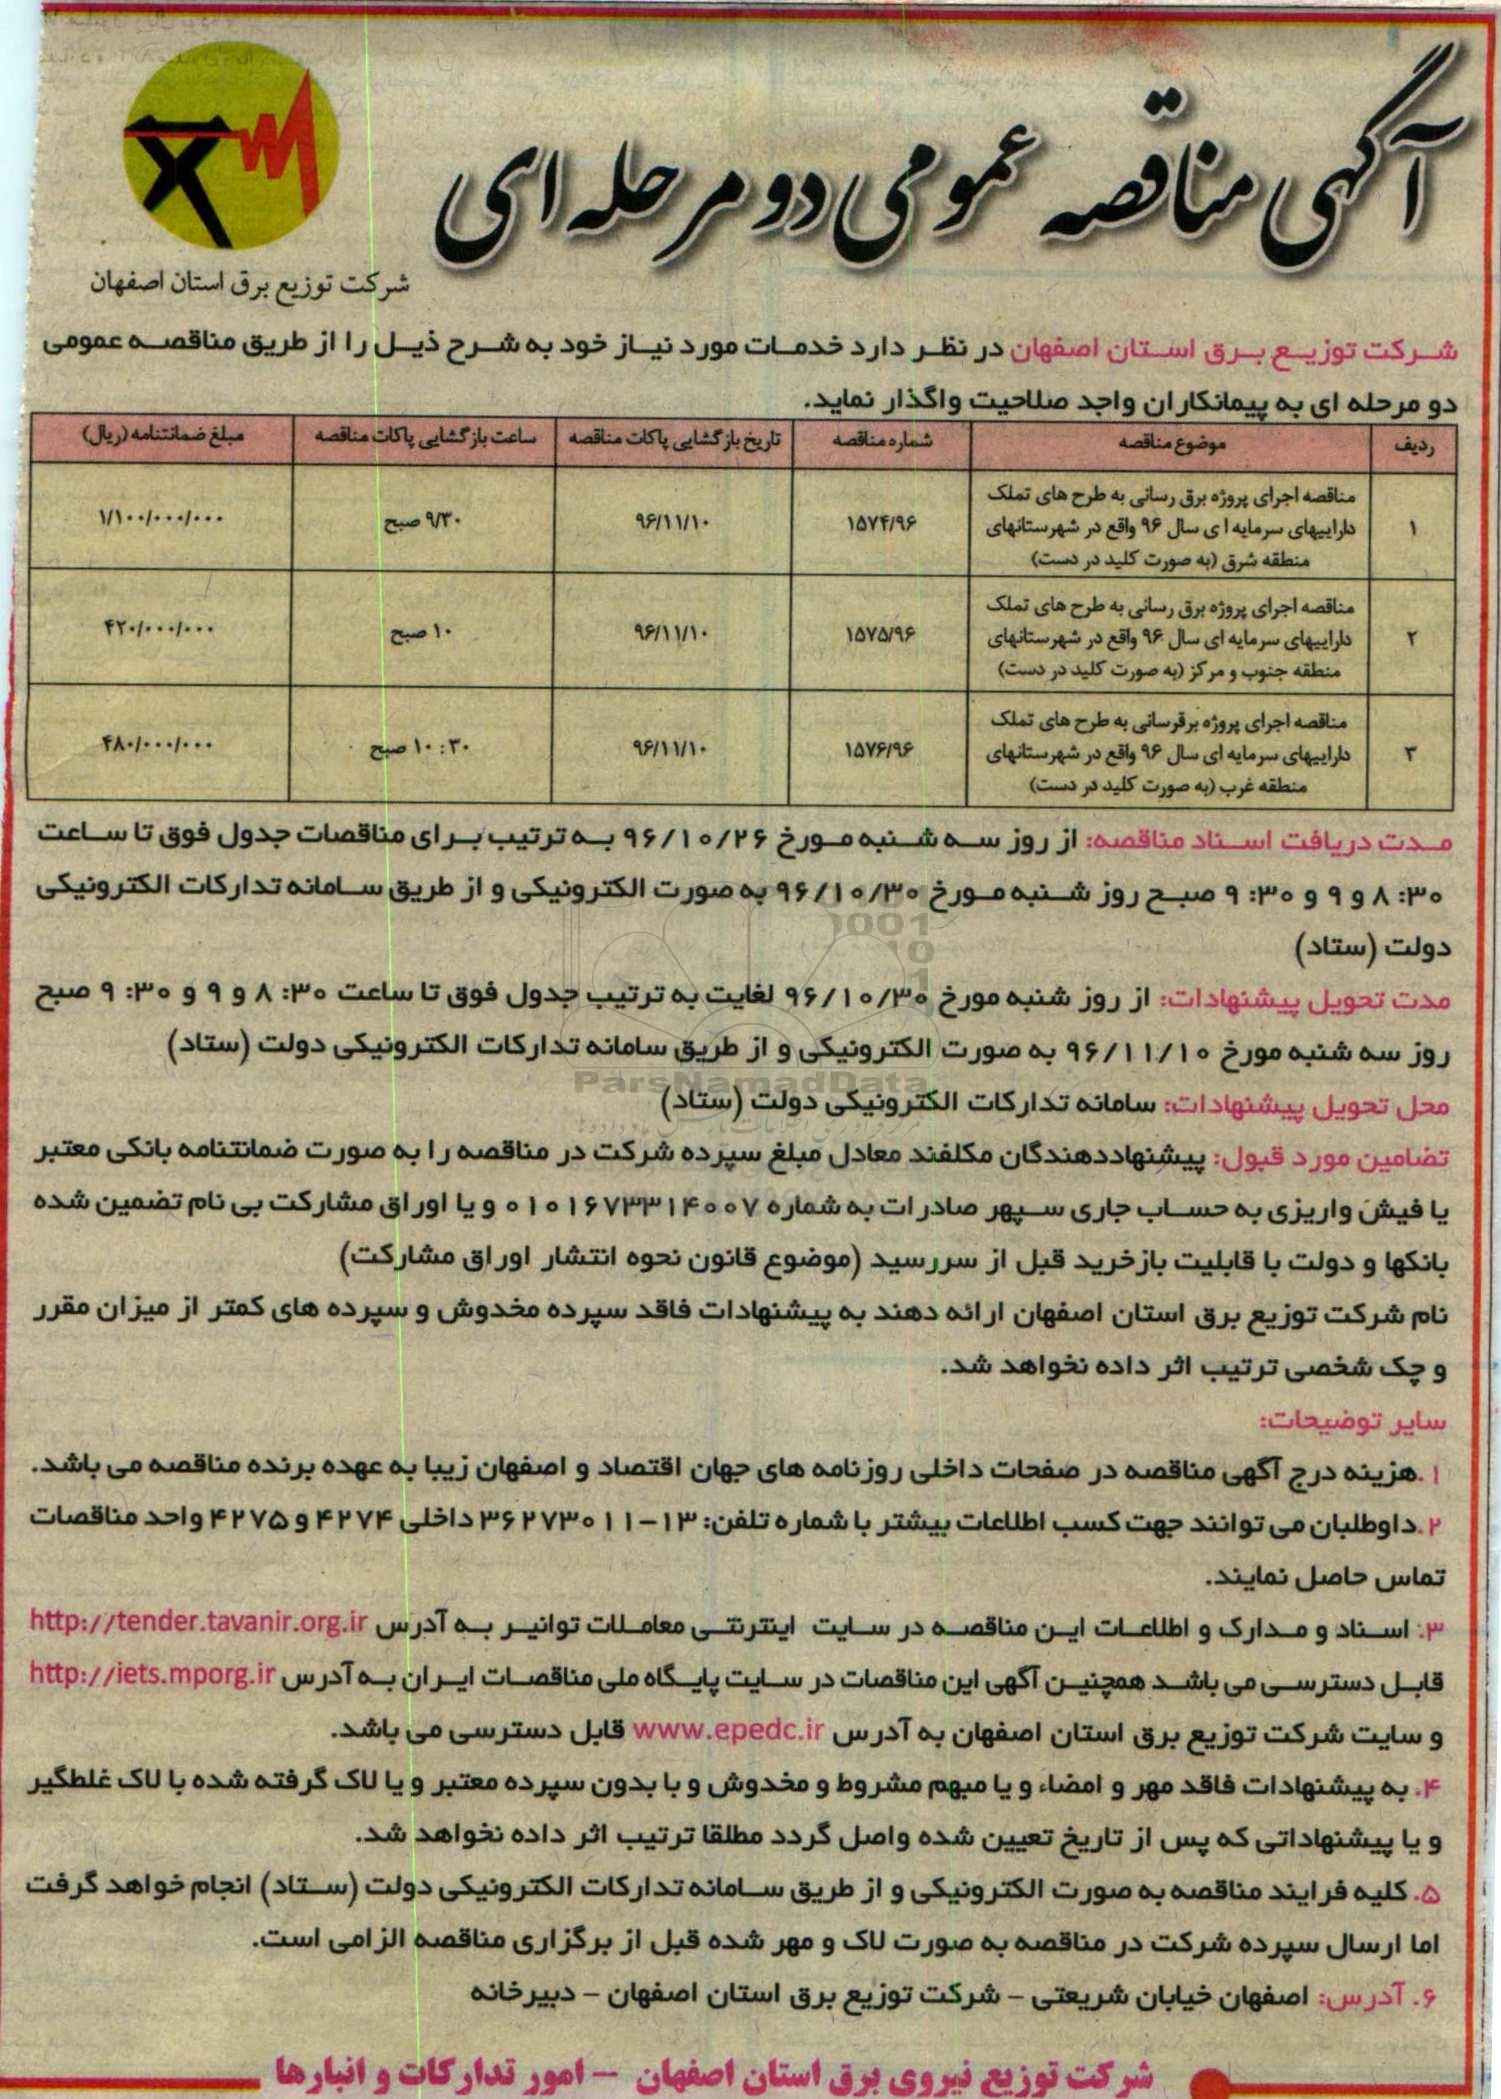 آگهی مناقصه عمومی دو مرحله ای
شرکت توزیع برق استان اصفهان
شرکت توزیع برق استان اصفهان در نظر دارد خدمات مورد نیاز خود به شرح ذیل را از طریق مناقصه عمومی
دو مرحله ای به پیمانکاران واجد صلاحیت واگذار نماید.
ردیف موضوع مناقصه شماره مناقصه تاریخ بازگشایی پاکات مناقصه ساعت بازگشایی پاکات مناقصه مبلغ ضمانتنامه (ریال)
مناقصه اجرای پروژه برق رسانی به طرح های تملک
۱ داراییهای سرمایه ا ی سال ۹۶ واقع در شهرستانهای ۱۵۷۴/۹۶ ۹۶/۱۱/۱۰ ۹/۳۰ صبح ۱/۱۰۰/۰۰۰/۰۰۰
منطقه شرق (به صورت کلید در دست)
مناقصه اجرای پروژه برق رسانی به طرح های تملک
۲ داراییهای سرمایه ای سال ۹۶ واقع در شهرستانهای ۱۵۷۵/۹۶ ۹۶/۱۱/۱۰ ۱۰ صبح ۴۲۰/۰۰۰/۰۰۰
منطقه جنوب و مرکز (به صورت کلید در دست)
مناقصه اجرای پروژه برقرسانی به طرح های تملک
۳ داراییهای سرمایه ای سال ۹۶ واقع در شهرستانهای ۱۵۷۶/۹۶ ۹۶/۱۱/۱۰ ۱۰:۳۰ صبح ۴۸۰/۰۰۰/۰۰۰
منطقه غرب (به صورت کلید در دست)
مدت دریافت اسناد مناقصه: از روز سه شنبه مورخ ۹۶/۱۰/۲۶ به ترتیب برای مناقصات جدول فوق تا ساعت
۸:۳۰ و ۹ و ۹:۳۰ صبح روز شنبه مورخ ۹۶/۱۰/۳۰ به صورت الکترونیکی و از طریق سامانه تدارکات الکترونیکی
دولت (ستاد)
مدت تحویل پیشنهادات: از روز شنبه مورخ ۹۶/۱۰/۳۰ لغایت به ترتیب جدول فوق تا ساعت ۸:۳۰ و ۹ و ۹:۳۰ صبح
روز سه شنبه مورخ ۹۶/۱۱/۱۰ به صورت الکترونیکی و از طریق سامانه تدارکات الکترونیکی دولت (ستاد)
ParsNamadData
محل تحویل پیشنهادات: سامانه تدارکات الکترونیکی دولت (ستاد)
تضامین مورد قبول: پیشنهاددهندگان مکلفند معادل مبلغ سپرده شرکت در مناقصه را به صورت ضمانتنامه بانکی معتبر
یا فیش واریزی به حساب جاری سپهر صادرات به شماره ۰۱۰۱۶۷۳۳۱۴۰۰۷ و یا اوراق مشارکت بی نام تضمین شده
بانکها و دولت با قابلیت بازخرید قبل از سررسید (موضوع قانون نحوه انتشار اوراق مشارکت)
نام شرکت توزیع برق استان اصفهان ارائه دهند به پیشنهادات فاقد سپرده مخدوش و سپرده های کمتر از میزان مقرر
و چک شخصی ترتیب اثر داده نخواهد شد.
سایر توضیحات:
۱.هزینه درج آگهی مناقصه در صفحات داخلی روزنامه های جهان اقتصاد و اصفهان زیبا به عهده برنده مناقصه می باشد.
۲.داوطلبان می توانند جهت کسب اطلاعات بیشتر با شماره تلفن: ۱۳-۳۶۲۷۳۰۱۱ داخلی ۴۲۷۴ و ۴۲۷۵ واحد مناقصات
تماس حاصل نمایند.
۳. اسناد و مدارک و اطلاعات این مناقصه در سایت اینترنتی معاملات توانیر به آدرس http://tender.tavanir.org.ir
قابل دسترسی می باشد همچنین آگهی این مناقصات در سایت پایگاه ملی مناقصات ایران به آدرس http://iets.mporg.ir
و سایت شرکت توزیع برق استان اصفهان به آدرس www.epedc.ir قابل دسترسی می باشد.
۴. به پیشنهادات فاقد مهر و امضاء و یا مبهم مشروط و مخدوش و با بدون سپرده معتبر و یا لاک گرفته شده با لاک غلطگیر
و یا پیشنهاداتی که پس از تاریخ تعیین شده واصل گردد مطلقا ترتیب اثر داده نخواهد شد.
۵. کلیه فرایند مناقصه به صورت الکترونیکی و از طریق سامانه تدارکات الکترونیکی دولت (ستاد) انجام خواهد گرفت
اما ارسال سپرده شرکت در مناقصه به صورت لاک و مهر شده قبل از برگزاری مناقصه الزامی است.
۶. آدرس: اصفهان خیابان شریعتی – شرکت توزیع برق استان اصفهان – دبیرخانه
شرکت توزیع نیروی برق استان اصفهان – امور تدارکات و انبارها